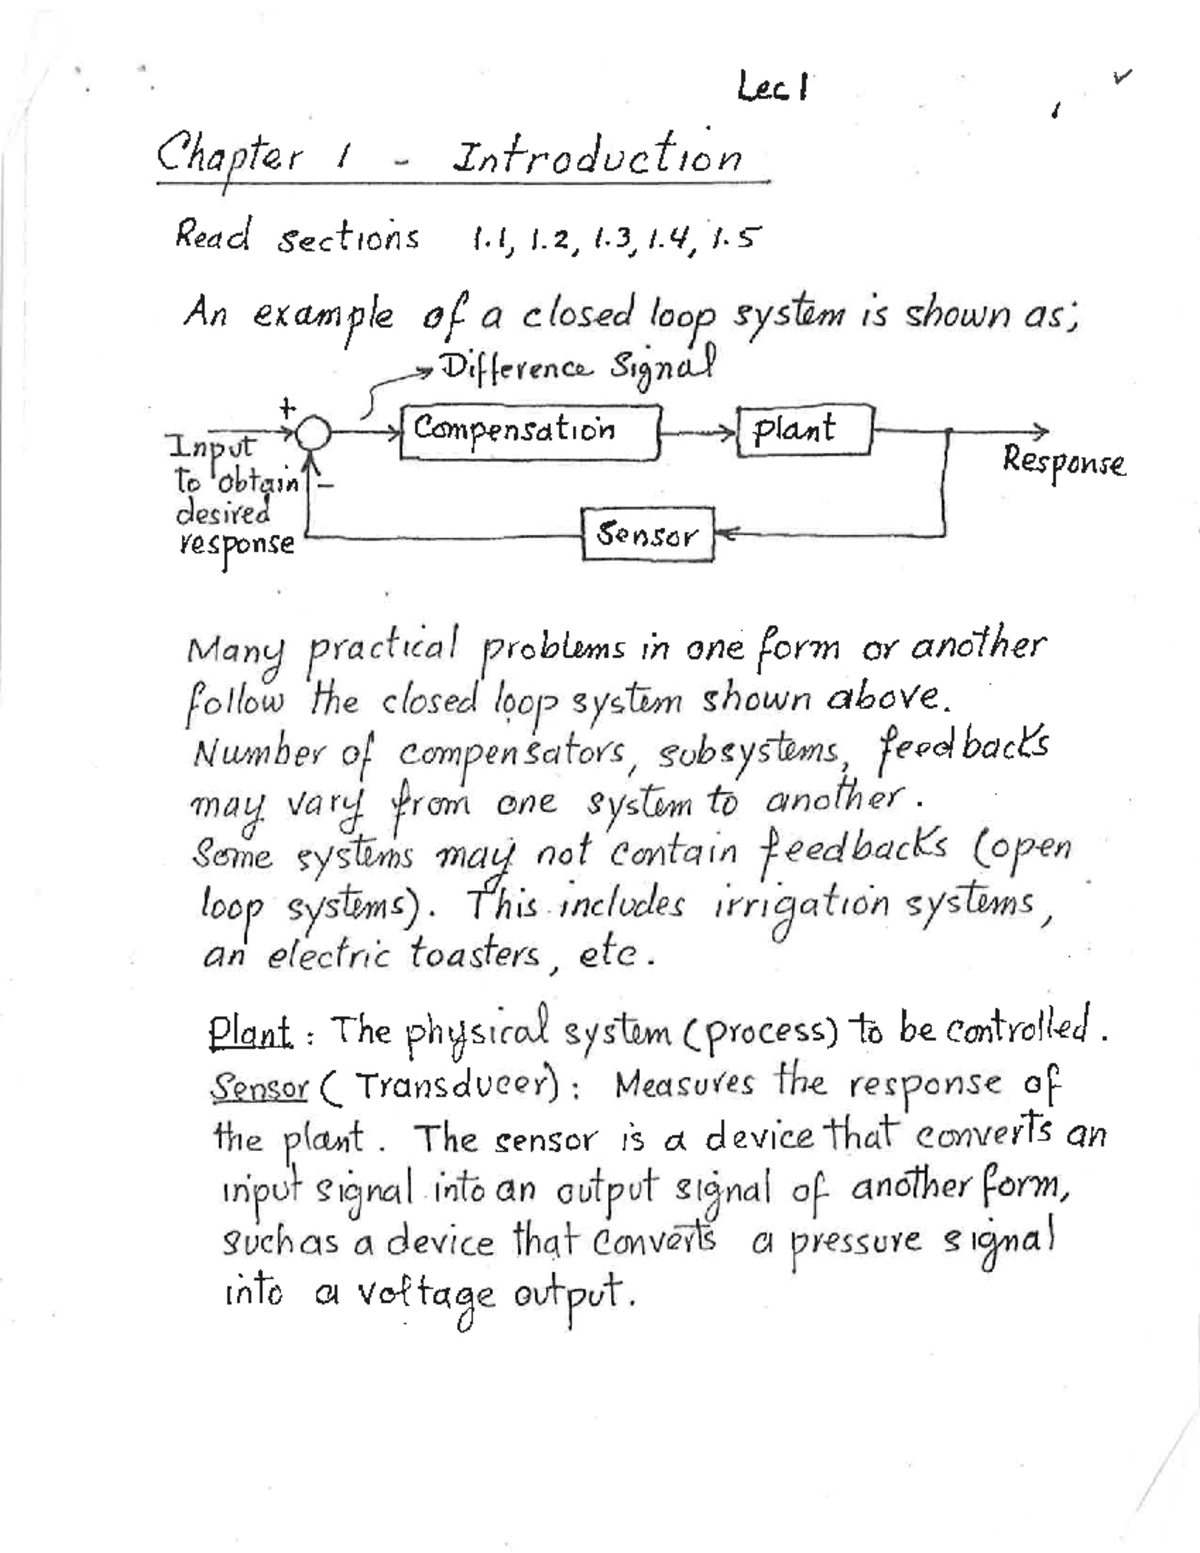 Lec 1
1
Chapter 1 - Introduction
Read sections 1.1, 1.2, 1.3, 1.4, 1.5
An example of a closed loop system is shown as;
Difference Signal
+
Compensation
Plant
Input
to obtain
desired
response
-
Response
Sensor
Many practical problems in one form or another
follow the closed loop system shown above.
Number of compensators, subsystems, feedbacks
may vary from one system to another.
Some systems may not contain feedbacks (open
loop systems). This includes irrigation systems,
an electric toasters, etc.
Plant: The physical system (process) to be controlled.
Sensor (Transducer): Measures the response of
the plant. The sensor is a device that converts an
input signal into an output signal of another form,
such as a device that converts a pressure signal
into a voltage output.